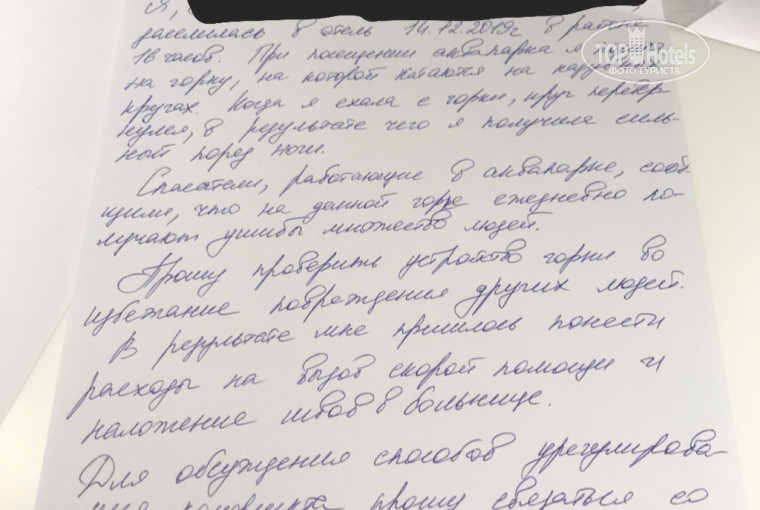 Я,
заселилась в отель 14.12.2019г в районе
16 часов. При посещении аквапарка я
на горку, на которой катаются на надувных
кругах. Когда я ехала с горки, круг перевер-
нулся, в результате чего я получила силь-
ный порез ноги.
Спасатели, работающие в аквапарке, сооб-
щили, что на данной горке ежедневно по-
лучают ушибы множество людей.
Прошу проверить устройство горки во
избежание повреждения других людей.
В результате мне пришлось понести
расходы на вызов скорой помощи и
наложение швов в больнице.
Для обсуждения способов урегулирова-
ния конфликта прошу связаться со
TOP Hotels
ФОТО ТУРИСТА